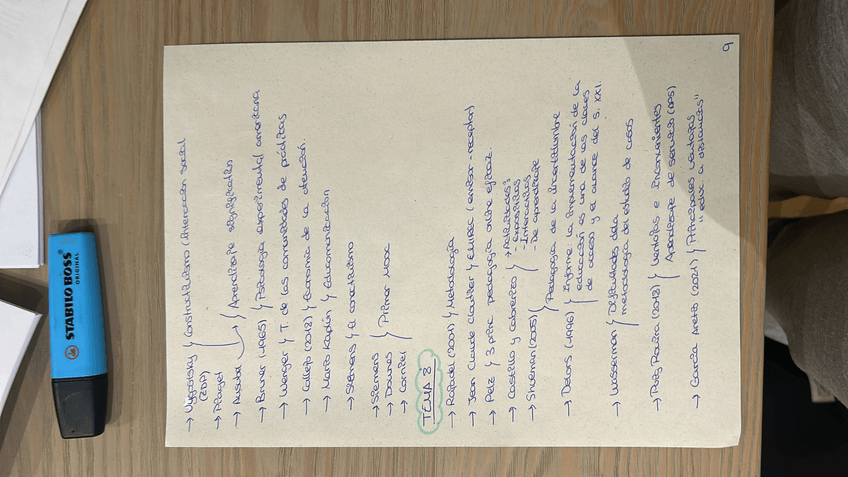 9
→ Vygotsky } Constructivismo (Interacción social
(ZDP)
→ Piaget
→ Ausubel } Aprendizaje significativo
→ Bruner (1965) } Psicología experimental americana
→ Wenger } T. de las comunidades de prácticas
→ Callejo (2018) } Economía de la atención.
→ Mario Kaplún } Educomunicación
→ Siemens } El conectivismo
→ Siemens
→ Downes } Primer MOOC
→ Cormier
TEMA 3
→ Rafaeli (2001) } Metodología
→ Jean Claude Cloutier } EMIREC (emisor-receptor)
→ Pelz } 3 princ. pedagogía online eficaz.
→ Castillo y Cabrerizo } → Actividades:
- Expositivas
- Interactivas
- De aprendizaje
→ Shulman (2005) } Pedagogía de la incertidumbre
→ Delors (1996) } Informe: la implementación de la
educación es una de las claves
de acceso y el avance del s. XXI.
→ Wasserman } Dificultades de la
metodología del estudio de casos
→ Puig Rovira (2018) } Ventajas e Inconvenientes
Aprendizaje de servicio (APS)
→ García Aretio (2021) } Principales ventajas
"educ a distancia"
STABILO BOSS
ORIGINAL